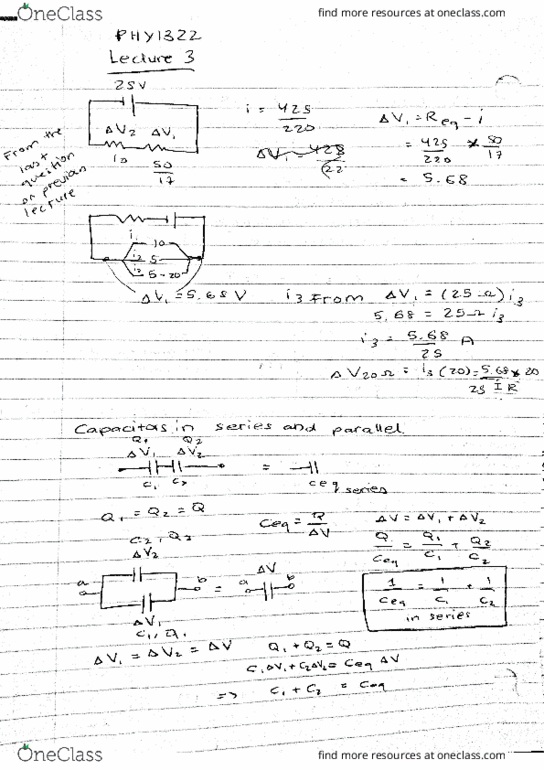 OneClass
find more resources at oneclass.com
PHY1322
Lecture 3
25V
ΔV₂ ΔV₁
10 50/17
From the
last
question
on previous
lecture
i = 425/220
ΔV₁ = 428/22
ΔV₁ = Req - i
= 425/220 * 50/17
= 5.68
i₁ 10
i₂ 5
i₃ 5-20
ΔV₁ = 5.68 V
i₃ From ΔV₁ = (25Ω) i₃
5.68 = 25Ω i₃
i₃ = 5.68/25 A
ΔV20Ω = i₃(20) = 5.68/25 * 20
I R
Capacitas in series and parallel
Q₁ Q₂
ΔV₁ ΔV₂
C₁ C₂
= Ceq series
Q₁ = Q₂ = Q
Ceq = Q/ΔV
ΔV = ΔV₁ + ΔV₂
Q/Ceq = Q₁/C₁ + Q₂/C₂
1/Ceq = 1/C₁ + 1/C₂
in series
C₂, Q₂
ΔV₂
a b = a ΔV b
ΔV₁
C₁, Q₁
ΔV₁ = ΔV₂ = ΔV
Q₁ + Q₂ = Q
C₁ΔV₁ + C₂ΔV₂ = Ceq ΔV
=> C₁ + C₂ = Ceq
OneClass
find more resources at oneclass.com